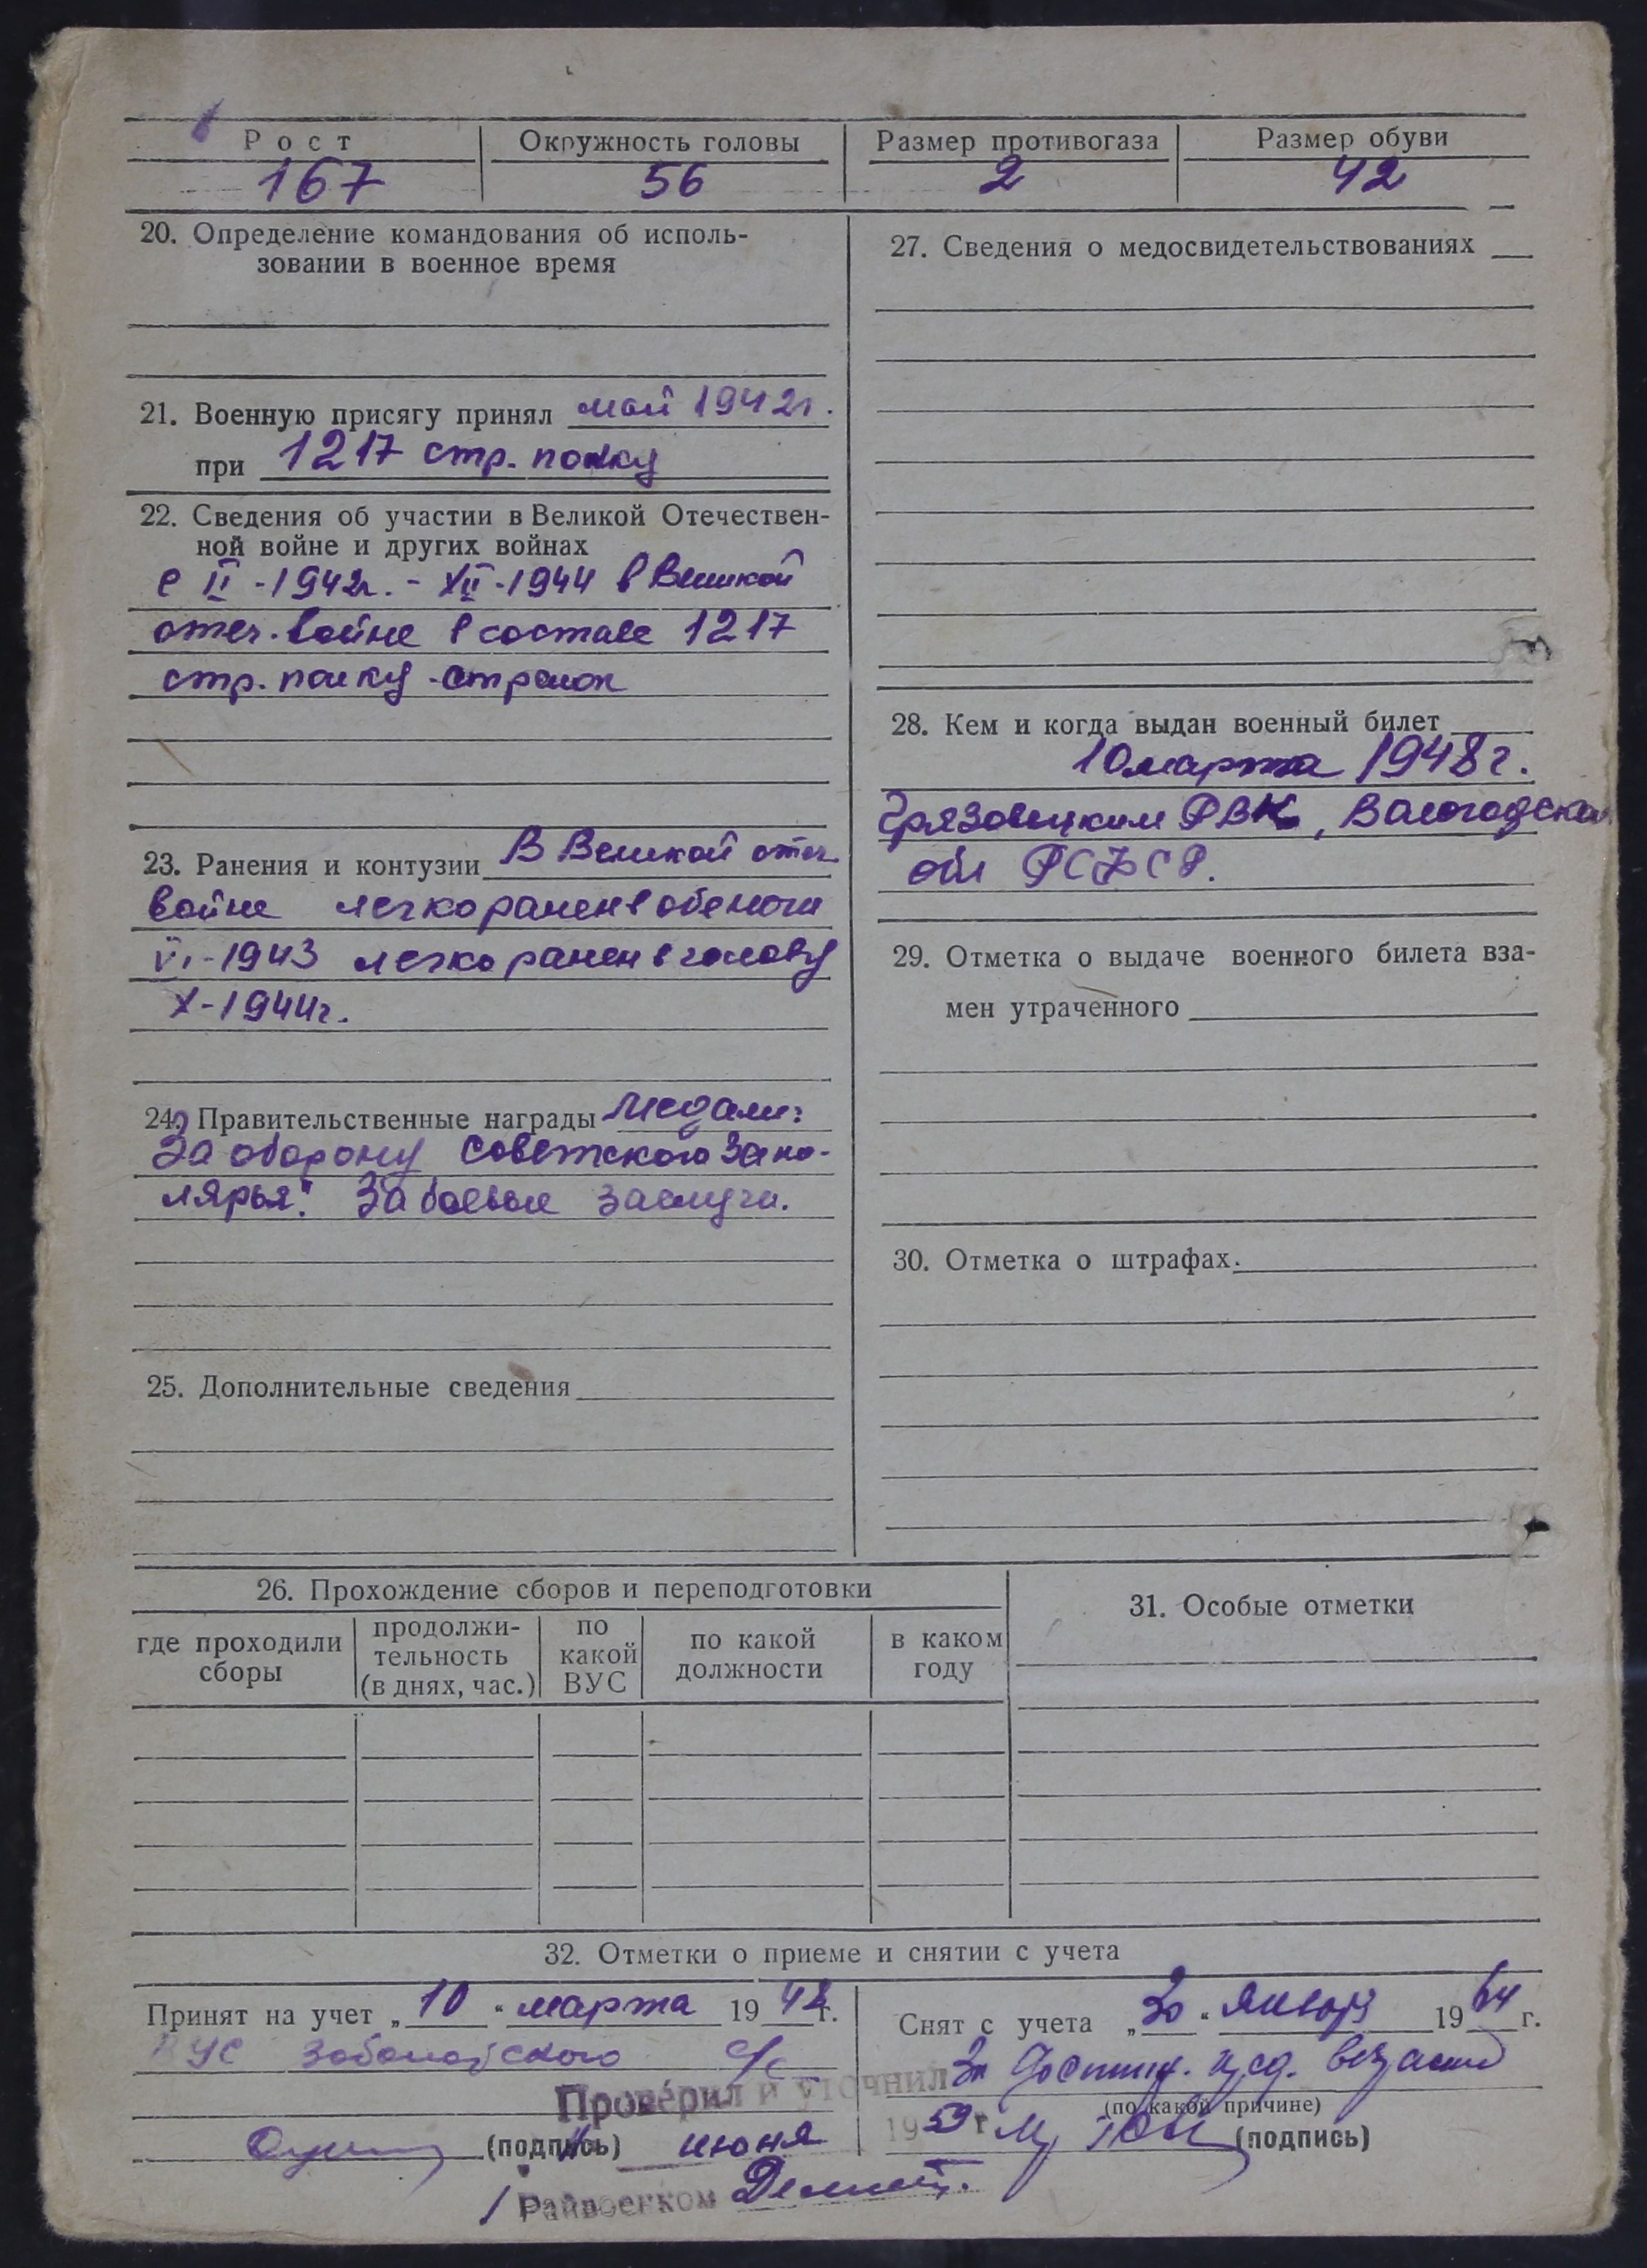 Рост Окружность головы Размер противогаза Размер обуви
167 56 2 42
20. Определение командования об исполь-
зовании в военное время
21. Военную присягу принял май 1942г.
при 1217 стр. полку
22. Сведения об участии в Великой Отечествен-
ной войне и других войнах
с II-1942г. - XII-1944 в Великой
отеч. войне в составе 1217
стр. полку - стрелок
23. Ранения и контузии В Великой отеч.
войне легко ранен в обе ноги
VI-1943 легко ранен в голову
X-1944г.
24. Правительственные награды Медали:
За оборону Советского Запо-
лярья". За боевые заслуги.
25. Дополнительные сведения
27. Сведения о медосвидетельствованиях
28. Кем и когда выдан военный билет
10 марта 1948 г.
Грязовецким РВК, Вологодской
обл РСФСР.
29. Отметка о выдаче военного билета вза-
мен утраченного
30. Отметка о штрафах.
26. Прохождение сборов и переподготовки
где проходили сборы
продолжи-
тельность
(в днях, час.)
по
какой
ВУС
по какой
должности
в каком
году
31. Особые отметки
32. Отметки о приеме и снятии с учета
Принят на учет „10" марта 1948 г.
ВУС с/с
(подпись)
Снят с учета „30" января 1964 г.
За достиж. пред. возраста
(по какой причине)
(подпись)
Проверил и уточнил
июня 1959 г
Райвоенком